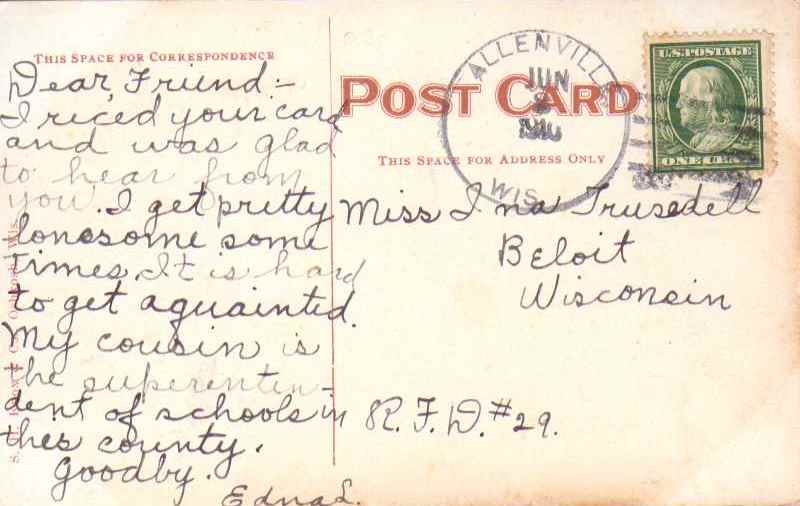 THIS SPACE FOR CORRESPONDENCE
Dear Friend:-
I riced your card
and was glad
to hear from
you. I get pretty
lonesome some
times It is hard
to get aquainted.
My cousin is
the superenten-
dent of schools in
thes county.
Goodby.
Edna L.
POST CARD
THIS SPACE FOR ADDRESS ONLY
ALLENVILLE
JUN
1910
WIS.
U.S. POSTAGE
ONE CENT
Miss Ina Trusedell
Beloit
Wisconsin
R. F. D. #29.